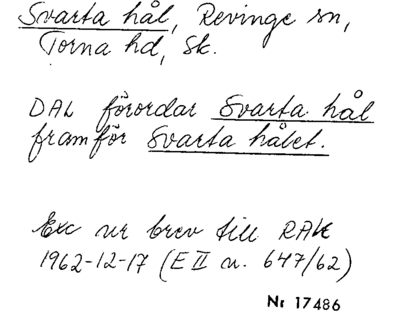 Svarta hål, Revinge sn,
Torna hd, Sk.
DAL förordar Svarta hål
framför Svarta hålet.
Exc ur brev till RAK
1962-12-17 (E II u. 647/62)
Nr 17486